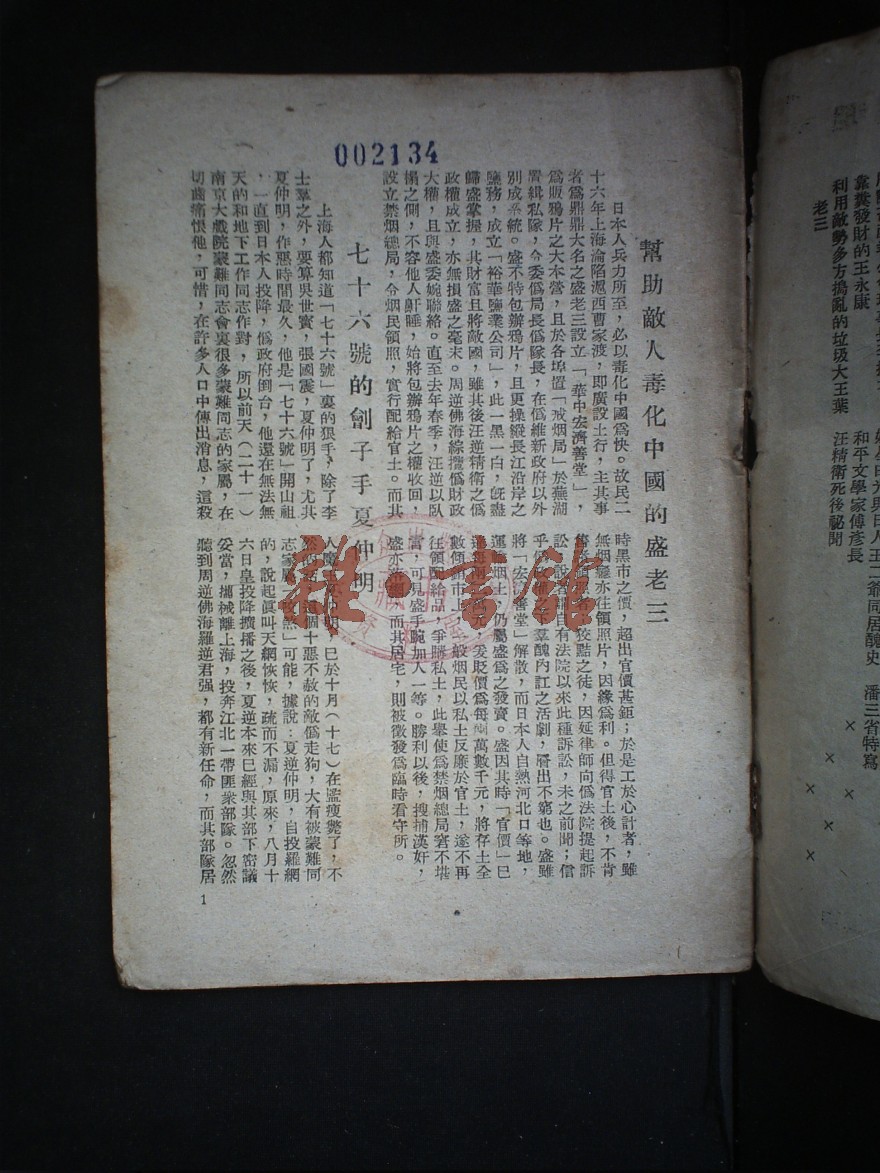 002134
幫助敵人毒化中國的盛老三
日本人兵力所至，必以毒化中國爲快。故民二
十六年上海淪陷滬西曹家渡，即廣設土行，主其事
者爲鼎鼎大名之盛老三設立「華中宏濟善堂」，
爲販鴉片之大本營，且於各埠置「戒烟局」於蕪湖
署緝私隊，令委僞局長僞隊長，在僞維新政府以外
別成系統。盛不特包辦鴉片，且更操縱長江沿岸之
鹽務，成立「裕華鹽業公司」，此一黑一白，旣盡
歸盛掌握，其財富且將敵國，雖其後汪逆精衛之僞
政權成立，亦無損盛之毫末。周逆佛海綜攬僞財政
大權，且與盛委婉聯絡。直至去年春季，汪逆以臥
榻之側，不容他人鼾睡，始將包辦鴉片之權收回，
設立禁烟總局，令烟民領照，實行配給官土。而其
時黑市之價，超出官價甚鉅；於是工於心計者，雖
無烟癮亦往領照片，因緣爲利。但得官土後，不肯
狡黠之徒，因延律師向僞法院提起訴
訟，說者謂自有法院以來此種訴訟，未之前聞；信
乎 羣醜內訌之活劇，層出不窮也。盛雖
將「宏濟善堂」解散，而日本人自熱河北口等地，
運 烟土，仍屬盛爲之發賣。盛因其時「官價」已
達每兩 萬元，爰貶價爲每兩萬數千元，將存土全
數傾銷市上，一般烟民以私土反廉於官土，遂不再
往領配給品，爭購私土，此舉使僞禁烟總局窘不堪
言，可見盛手腕加人一等。勝利以後，搜捕漢奸，
盛亦落網，而其居宅，則被徵發爲臨時看守所。
七十六號的劊子手夏仲明
上海人都知道「七十六號」裏的狠手，除了李
士羣之外，要算吳世寶，張國震，夏仲明了，尤其
夏仲明，作惡時間最久，他是「七十六號」開山祖
，一直到日本人投降，僞政府倒台，他還在無法無
天的和地下工作同志作對，所以前天（二十一）
南京大戲院蒙難同志會裏很多蒙難同志的家屬，在
切齒痛恨他，可惜，在許多人口中傳出消息，這殺
人魔王夏仲明，已於十月（十七）在監瘦斃了，不
然的話，這個十惡不赦的敵僞走狗，大有被蒙難同
志家屬「咬煞」可能，據說：夏逆仲明，自投羅網
的，說起眞叫天網恢恢，疏而不漏，原來，八月十
六日皇投降擴播之後，夏逆本來已經與其部下密議
妥當，攜械離上海，投奔江北一帶匪衆部隊。忽然
聽到周逆佛海羅逆君强，都有新任命，而其部隊居
1
雜·書館
老三
靠糞發財的王永康
利用敵勢多方搗亂的垃圾大王葉
王二爺同居醜史
潘三省特寫
和平文學家傅彥長
汪精衛死後祕聞